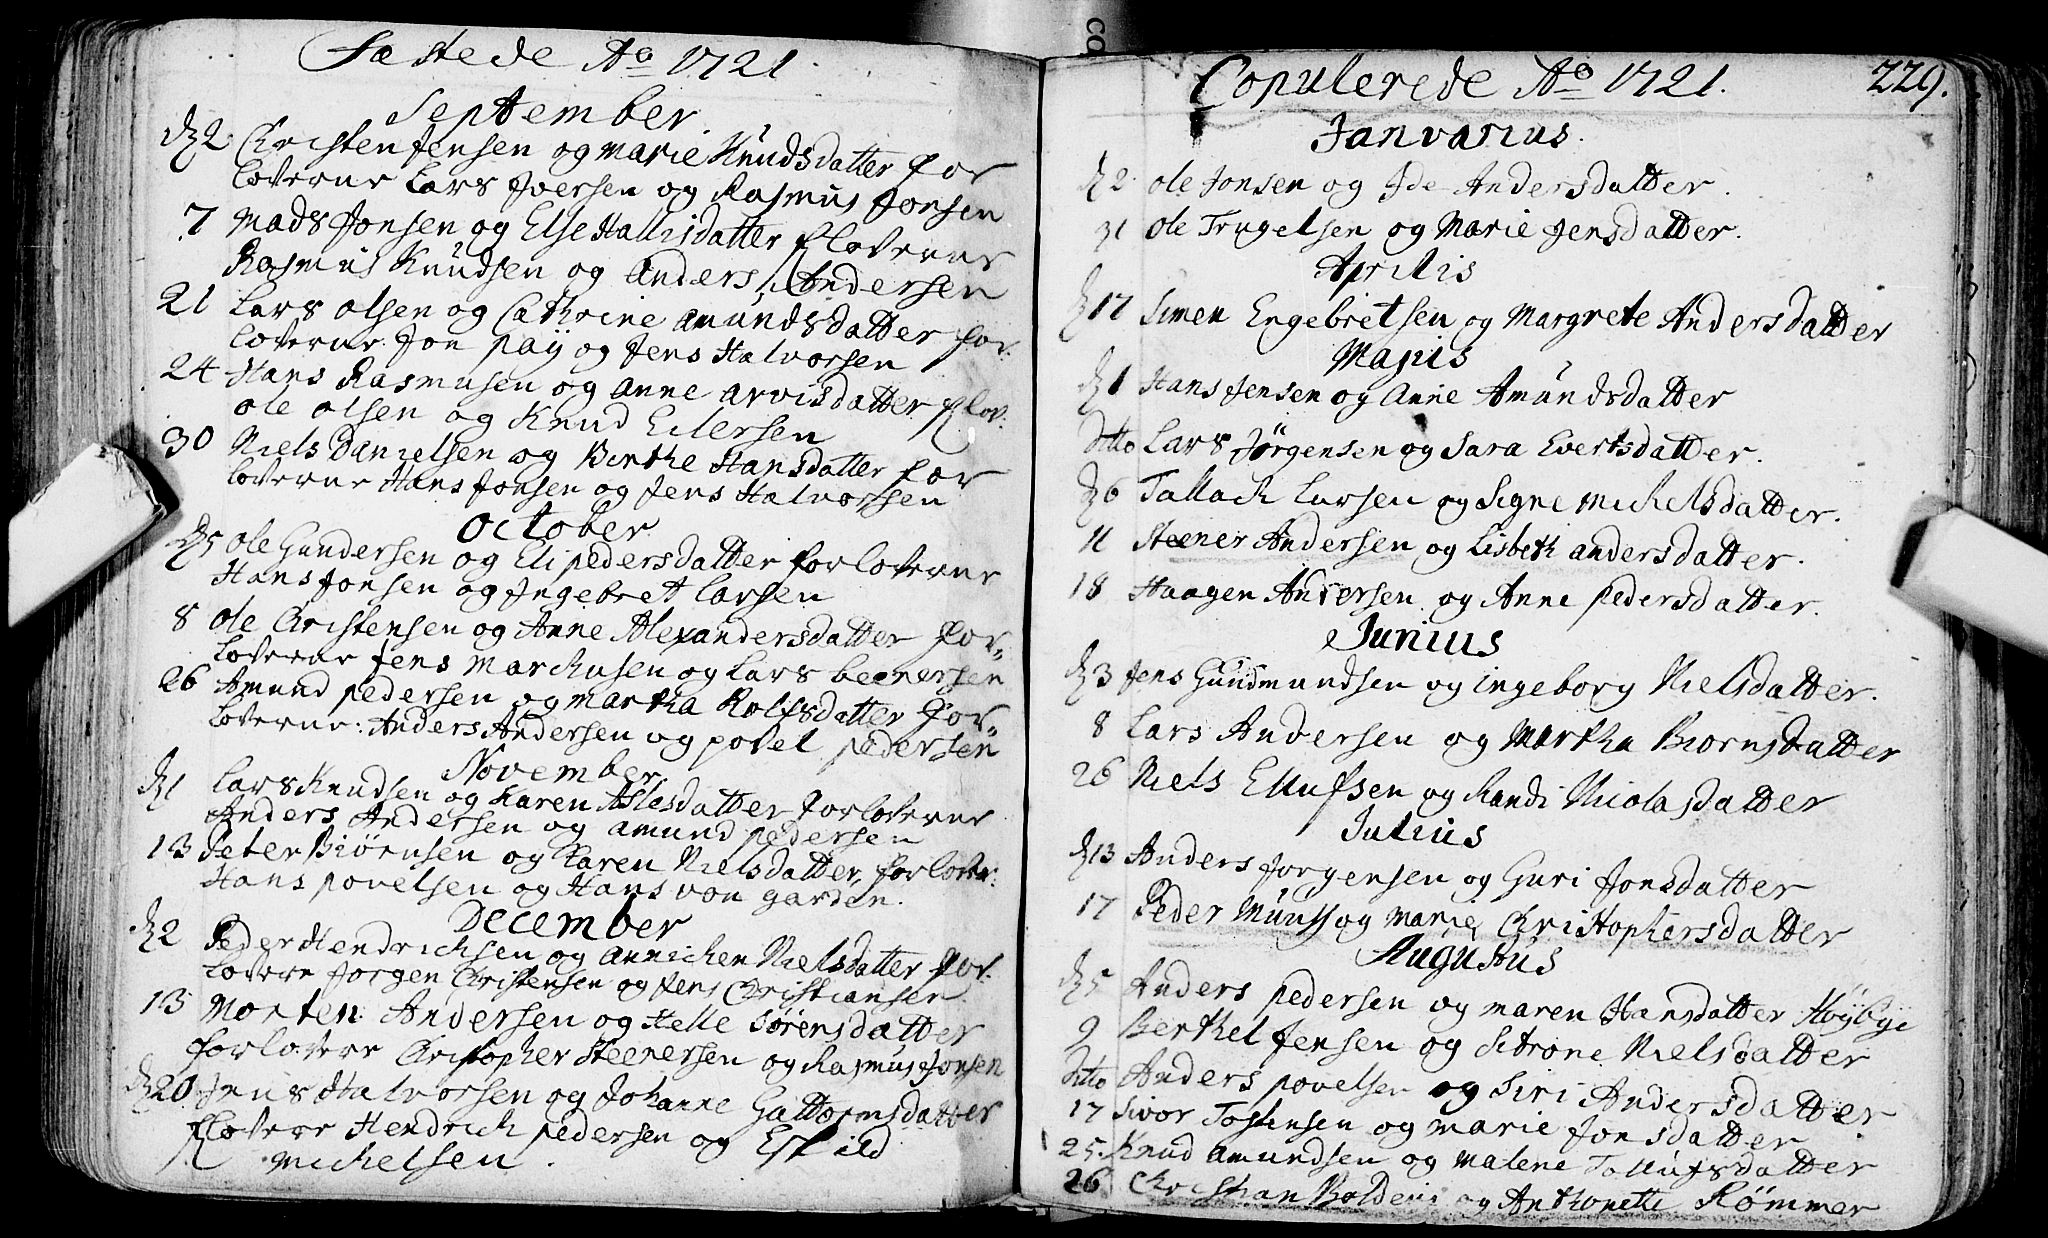 Fæstede Ao 1721
September.
d 2 Christen Jensen og Marie Knudsdatter for
loverne Lars Iversen og Rasmus Jonsen
7 Mads Jonsen og Else Hallisdatter floverne
Rasmus Knudsen og Anders Andersen
21 Lars Olsen og Cathrine Amundsdatter for:
loverne: Jon paij og Jens Halvorsen
24 Hans Rasmusen og Anne Arvisdatter flov:
Ole Olsen og Knud Eilersen
30 Niels Danielsen og Birthe Hansdatter for
loverne Hans Jonsen og Jens Halvorsen
October
d 5 Ole Gundersen og Eli pedersdatter forloverne
Hans Jonsen og Ingebret Larsen
8 Ole Christensen og Anne Alexandersdatter for„
loverne Jens Marchusen og Lars beenersen
26 Amund pedersen og Martha Rolfsdatter for„
loverne: Anders Andersen og povel pedersen
November
d 1 Lars Knudsen og Karen Aslesdatter forloverne
Anders Andersen og Amund pedersen
13 Peter Biörnsen og Karen Nielsdatter, forlover:
Hans povelsen og Hans von garden.
December
d 2 Peder Hendrichsen og Annichen Nielsdatter for:
lovere Jorgen Christensen og Jens Christiansen
13 Morten Andersen og Helle Sörensdatter
forlovere Christopher Steenersen og Rasmus Jonsen
d 20 Jens Halvorsen og Johanne Guttormsdatter
flovere Hendrich pedersen og Eskild
Michelsen.
Copulerede Ao 1721. 229.
Janvarius.
d 2 Ole Jonsen og Ide Andersdatter.
31 Ole Trugelsen og Marie Jensdatter.
Aprilis
d 17 Simen Engebretsen og Margrete Andersdatter
Majus
d 1 Hans Jensen og Anne Amundsdatter
Ditto Lars Jörgensen og Sara Evertsdatter.
d 6 Tallach Larsen og Signe Michelsdatter.
11 Steener Andersen og Lisbeth Andersdatter.
18 Haagen Andersen og Anne pedersdatter.
Junius
d 3 Jens Gundmundsen og Ingeborg Nielsdatter.
8 Lars Andersen og Martha Biornsdatter
26 Niels Ellufsen og Randi Nicolasdatter
Julius
d 13 Anders Jorgensen og Guri Jonsdatter
17 Peder Munss og Marie Christophersdatter
Augustus
d 5 Anders pedersen og Maren Hansdatter Höybye
9 Berthel Jensen og Sitrone Nielsdatter
Ditto Anders povelsen og Siri Andersdatter
17 Sivor Tostensen og Marie Jonsdatter
25. Knud Amundsen og Malene Tollufsdatter
26 Christian og Anthonette Römmer